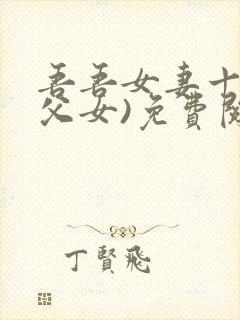 吾吾女妻十
父女)免費閱
丁賢飛